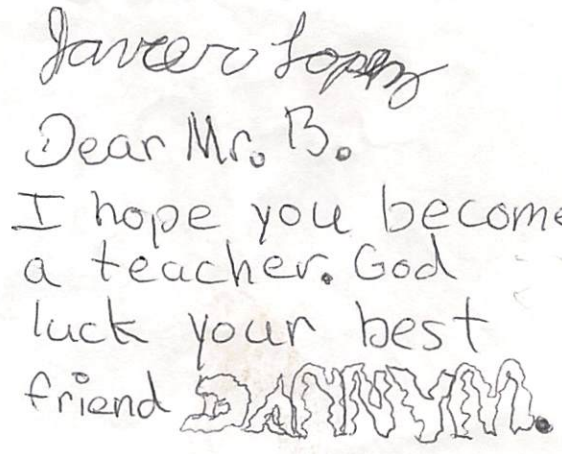 Javier Lopez
Dear Mr. B.
I hope you become
a teacher. God
luck your best
friend DANNY M.